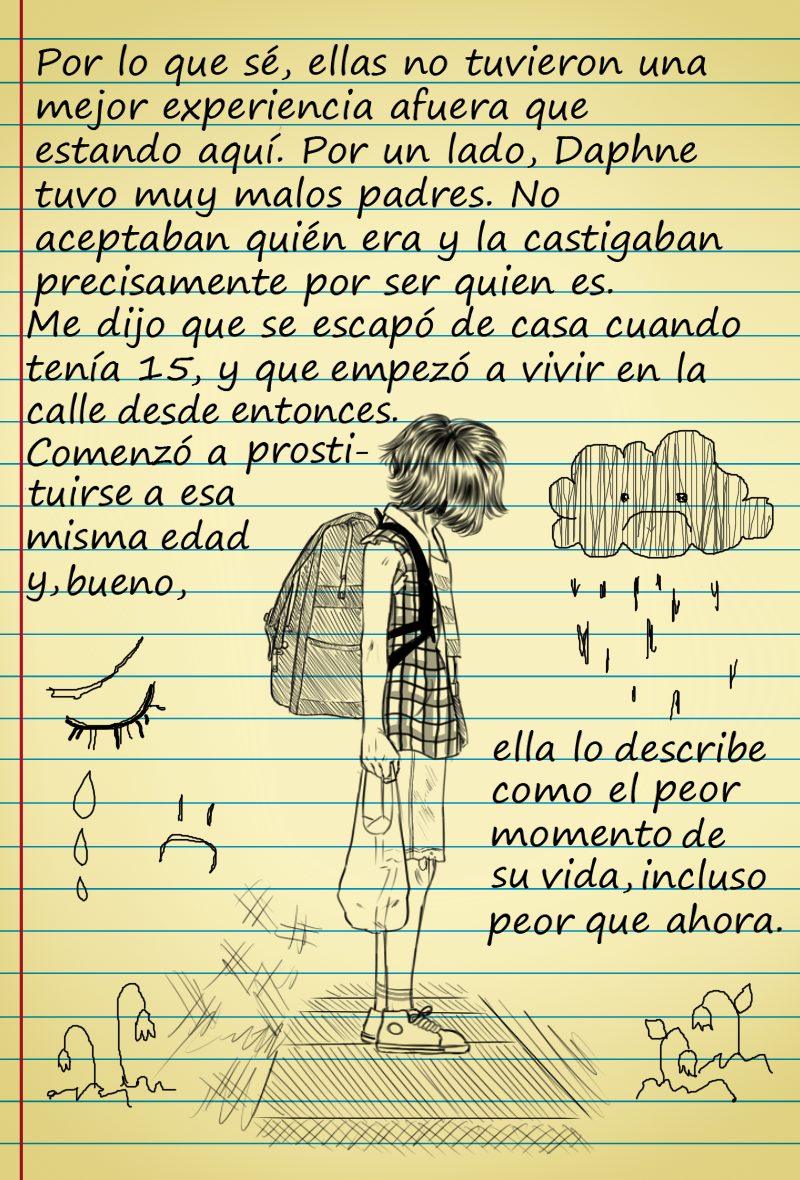 Por lo que sé, ellas no tuvieron una
mejor experiencia afuera que
estando aquí. Por un lado, Daphne
tuvo muy malos padres. No
aceptaban quién era y la castigaban
precisamente por ser quien es.
Me dijo que se escapó de casa cuando
tenía 15, y que empezó a vivir en la
calle desde entonces.
Comenzó a prosti-
tuirse a esa
misma edad
y, bueno,
ella lo describe
como el peor
momento de
su vida, incluso
peor que ahora.